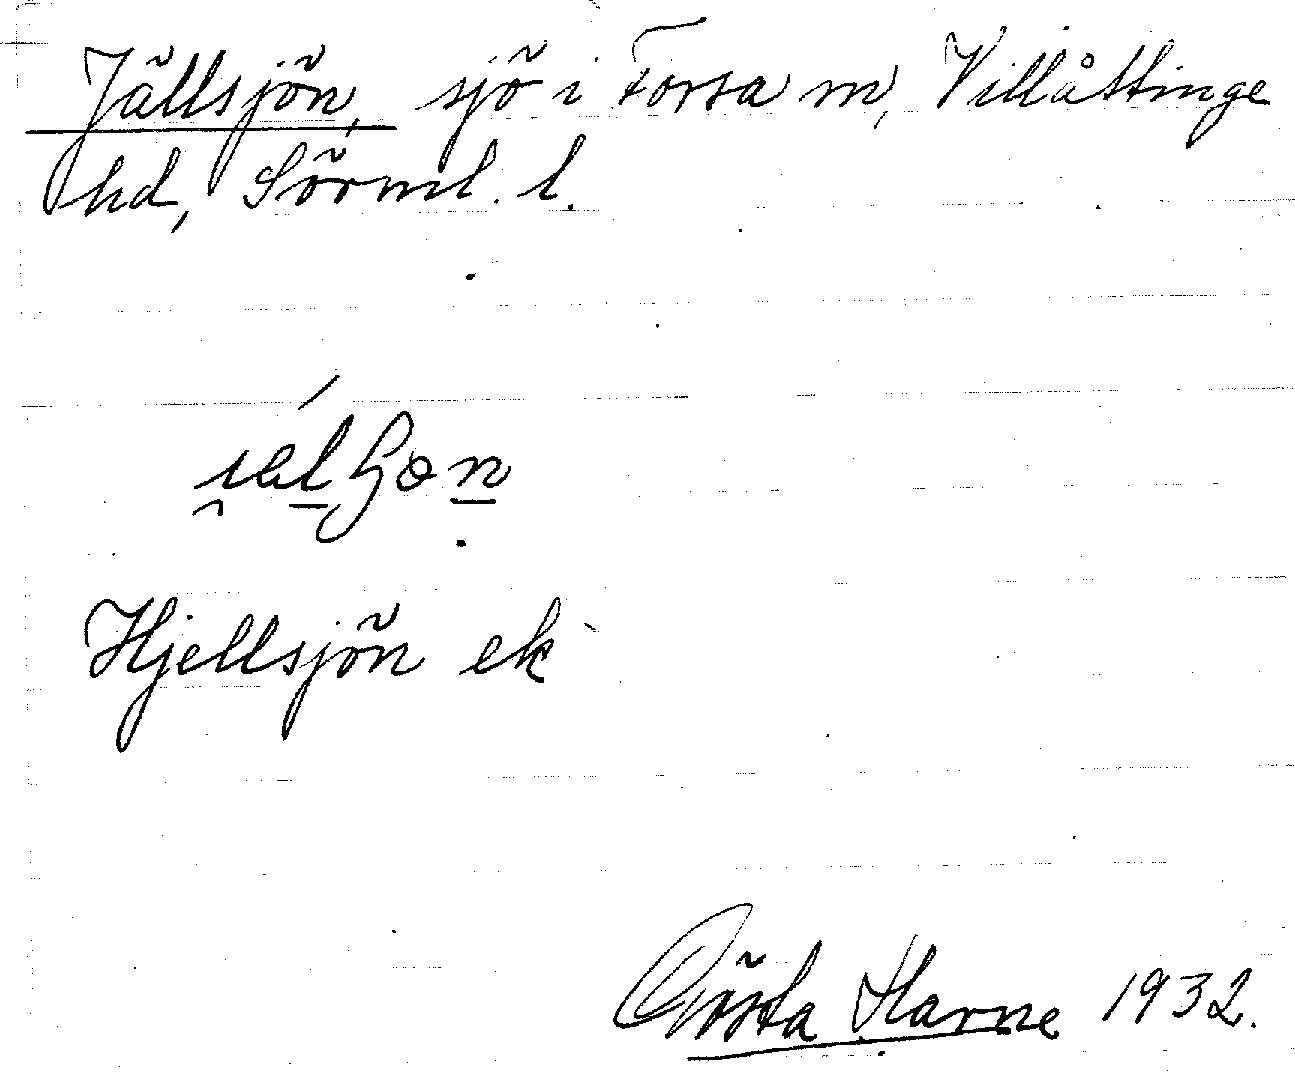 Jällsjön, sjö i Forssa sn, Villåttinge
hd, Sörml. l.
Hjellsjön ek
Gösta Harne 1932.